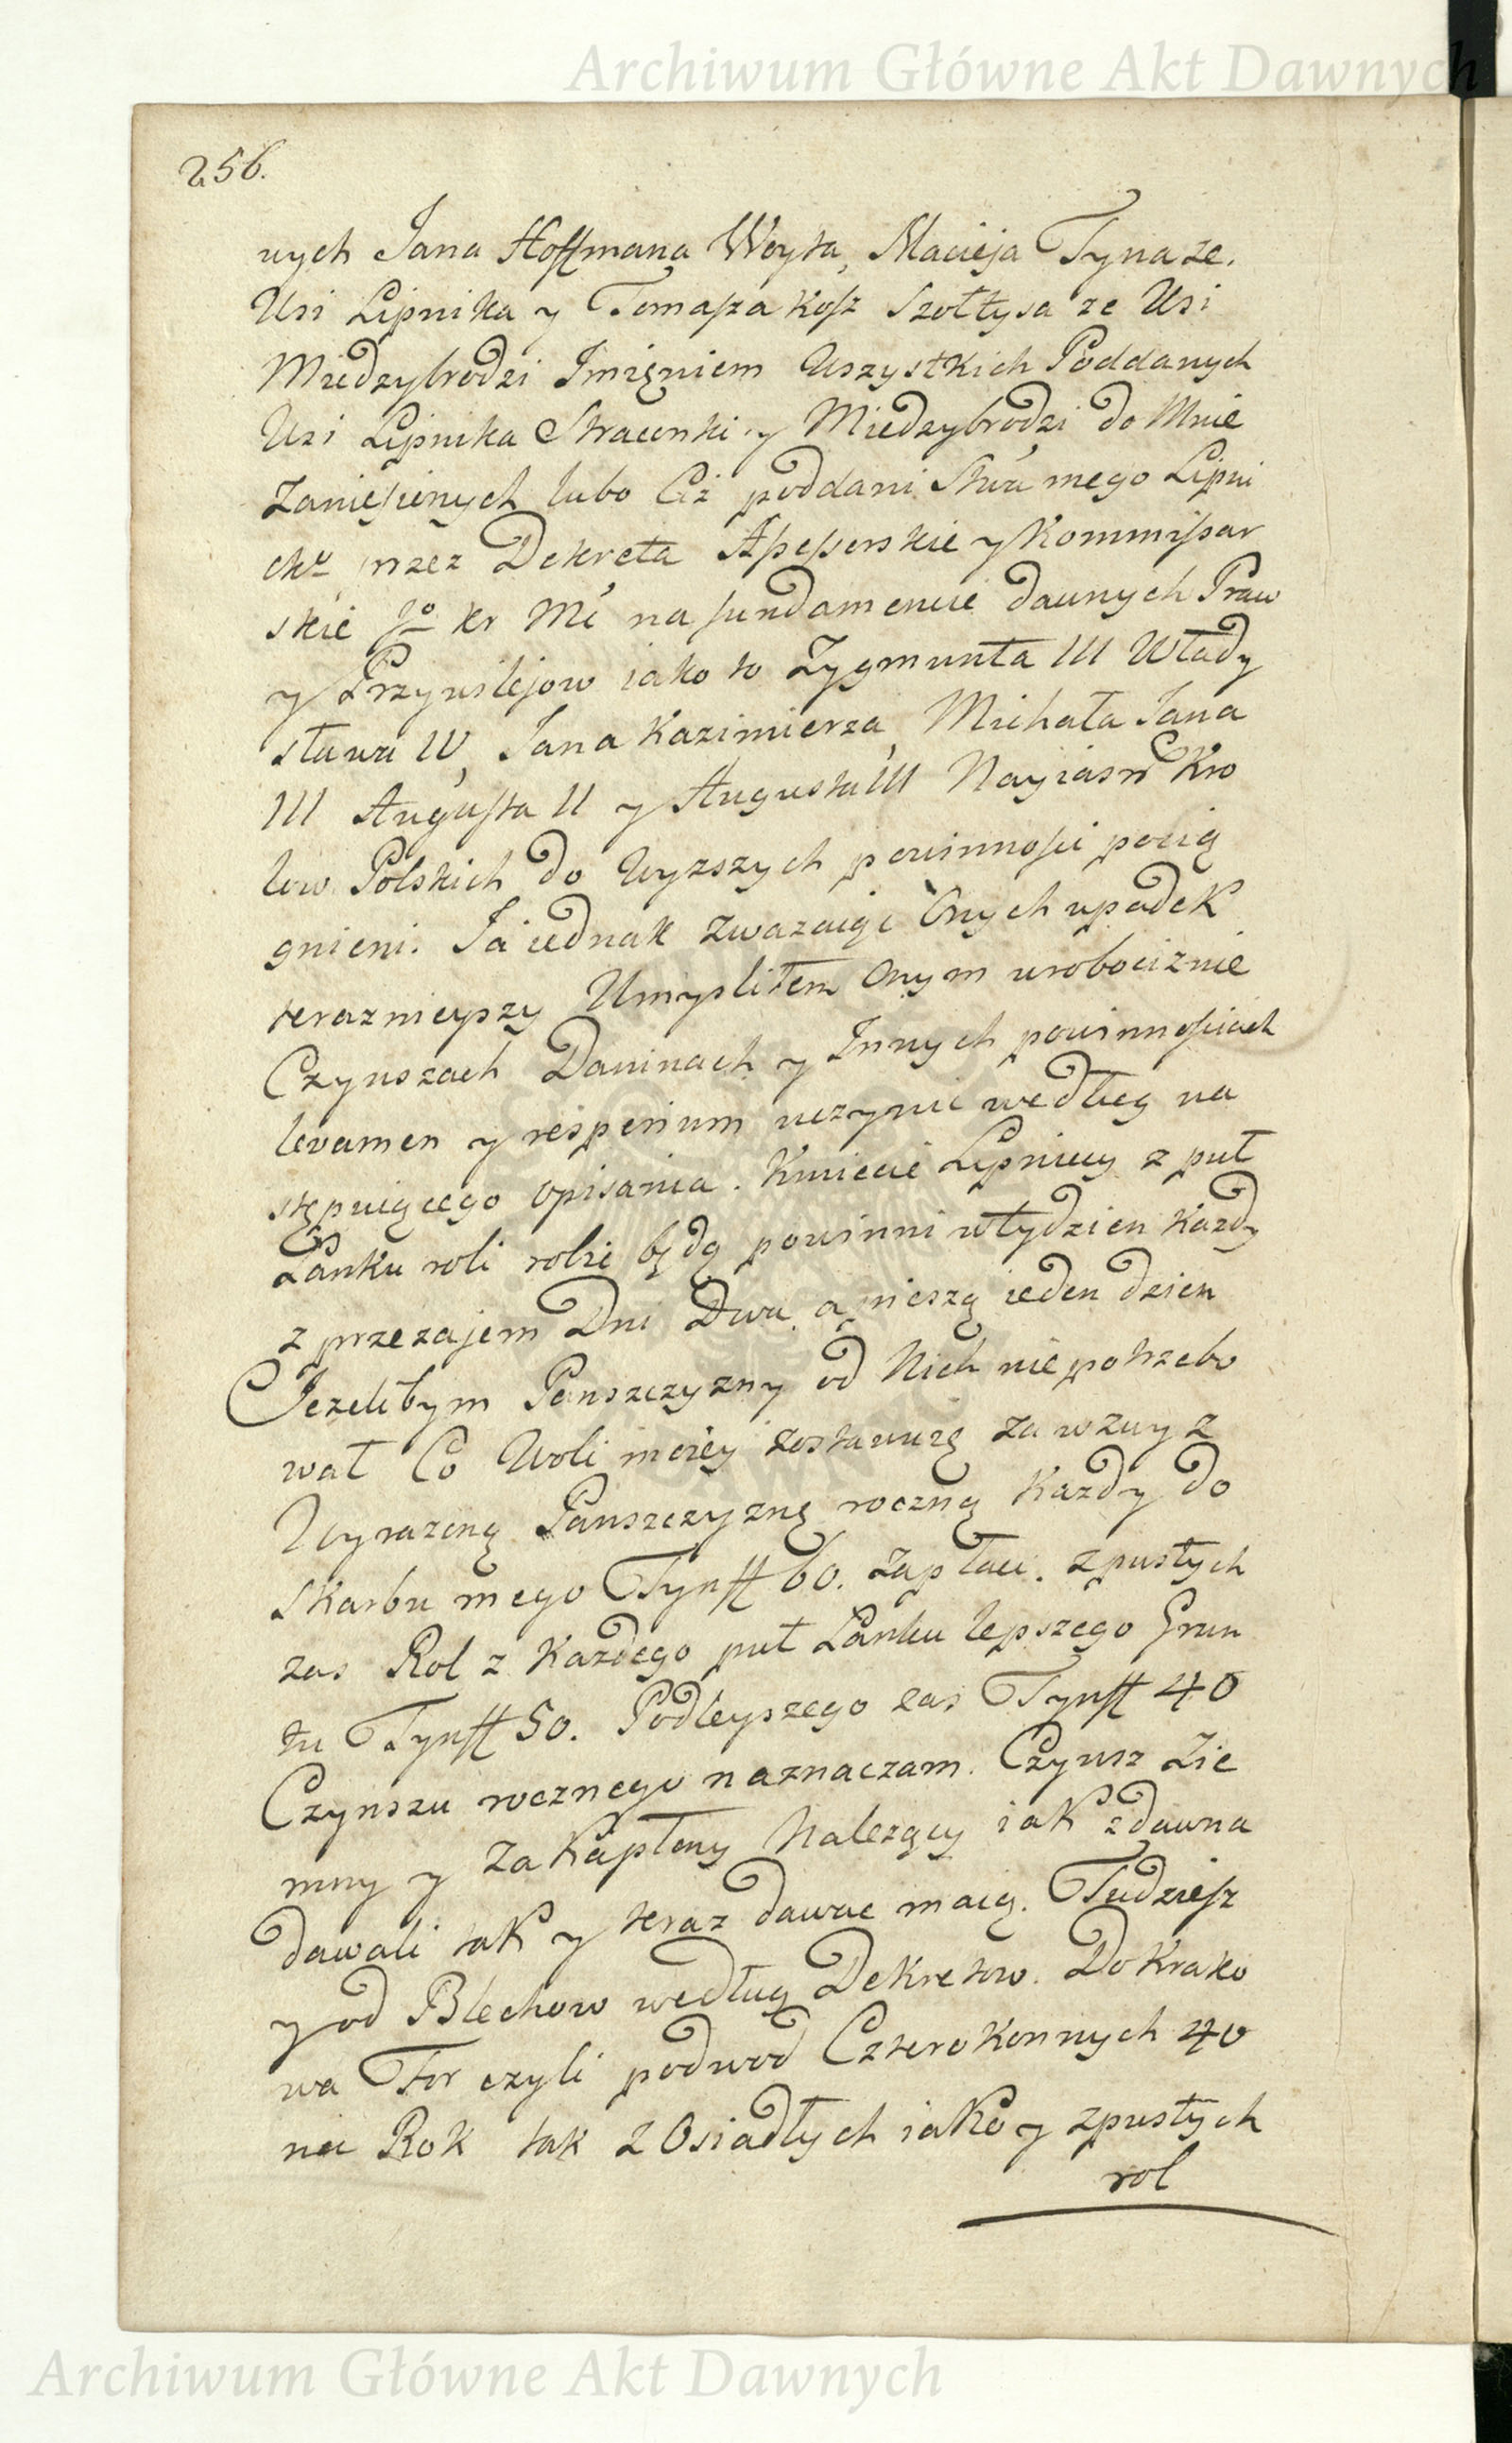 Archiwum Główne Akt Dawnych
256.
nych Jana Hoffmana Woyta, Macieja Tyna ze.
Wsi Lipnika y Tomasza Kosz Szołtysa ze Wsi
Miedzybrodzi Imięniem Wszystkich Poddanych
Wsi Lipnika Stracenki y Miedzybrodzi do Mnie
Zaniesienych lubo Ciż poddani Stwa mego Lipni
ckº przez Dekreta Assessorskie y Kommissar
skie Jº Kr Mci na fundamencie dawnych Praw
y Przywilejow iako to Zygmunta III Włady
sława IV, Jana Kazimierza, Michała Jana
III Augusta II y Augusta III Nayiasn Kro
low Polskich do Wyzszych powinnosci pocią
gnieni. Ja iednak zwazaiąc Onych upadek
teraznieyszy Umysliłem Onym w robociznie
Czynszach Daninach y Innych powinnosciach
levamen y respirium uczynic według na
stępuiącego opisania. Kmiecie Lipniccy z puł
Łanku roli robic będą powinni w tydzien kazdy
z przezajem Dni Dwa a pieszą ieden dzien
Jezelibym Panszczyzny od Nich nie potrzebo
wał Co Woli moiey zostawuię za wzwyz
Wyrazoną Panszczyznę roczną Kazdy do
Skarbu mego Tynff 60. zapłaci. z pustych
zas Rol z Kazdego puł Łanku lepszego Grun
tu Tynff 50. Podleyszego zas Tynff 40
Czynszu rocznego naznaczam. Czynsz Zie
mny y za Kapłony Nalezący iak zdawna
dawali tak y teraz dawac maią. Tudziesz
y od Blechow wedlug Dekretow. Do Krako
wa For czyli podwod Czterokonnych 40
na Rok tak z Osiadłych iako y z pustych
rol
Archiwum Główne Akt Dawnych